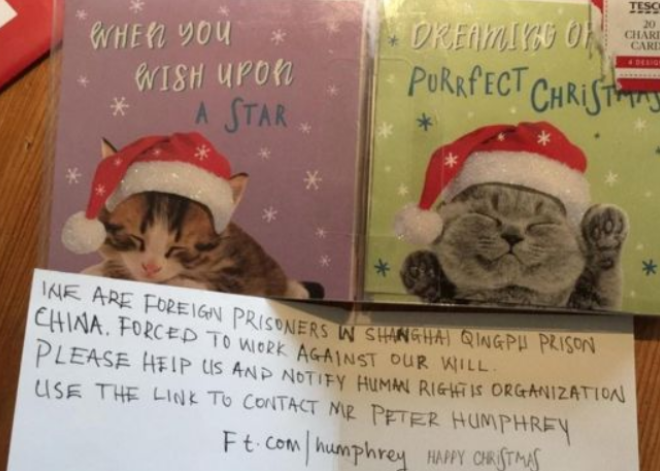 WHEN YOU
WISH UPON
A STAR
DREAMING OF
PURRFECT CHRISTMAS
TESCO
20
CHARI
CARD
4 DESIG
WE ARE FOREIGN PRISONERS IN SHANGHAI QINGPU PRISON
CHINA. FORCED TO WORK AGAINST OUR WILL.
PLEASE HELP US AND NOTIFY HUMAN RIGHTS ORGANIZATION
USE THE LINK TO CONTACT MR PETER HUMPHREY
Ft.com/humphrey HAPPY CHRISTMAS